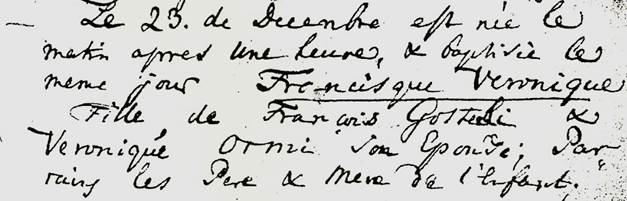 Le 23. de Decenbre est née le
matin apres Une heure, & baptisée le
meme jour Francisque Veronique
Fille de François Gosteli &
Veronique Ormi Son Epouse; Par-
rains les Pere & Mere de l'Enfant.